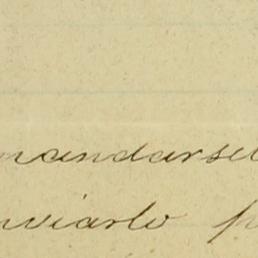 mandarsel
nviarlo p